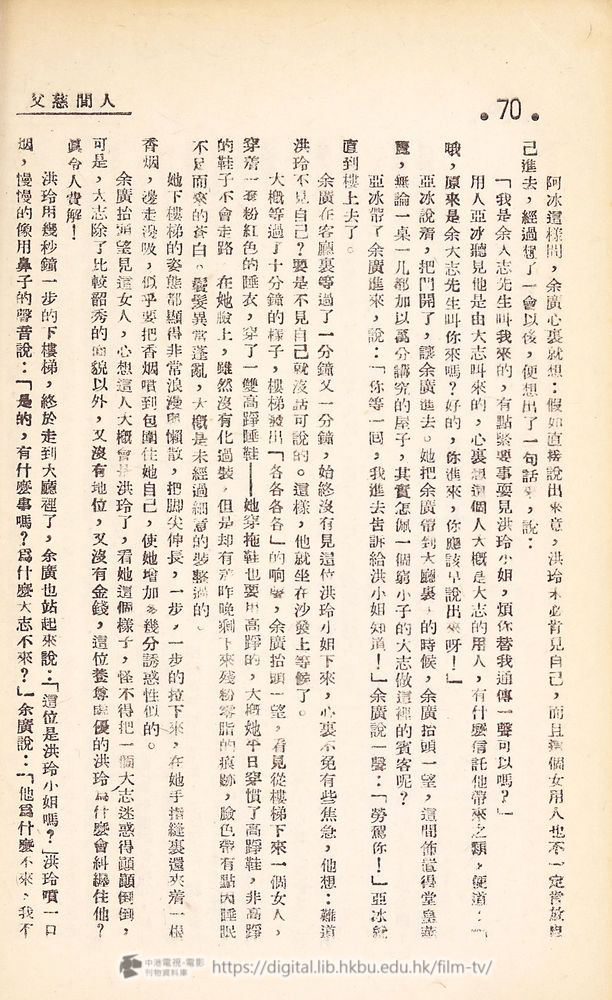 人間慈父
．70．
阿冰這樣問，余廣心裏就想：假如直接說出來意，洪玲未必肯見自己，而且這個女用人也不一定肯放自
己進去，經過想了一會以後，便想出了一句話來，說：
「我是余大志先生叫我來的，有點緊要事要見洪玲小姐，煩你替我通傳一聲可以嗎？」
用人亞冰聽見他是由大志叫來的，心裏想這個人大概是大志的用人，有什麼信託他帶來之類，便道：「
哦，原來是余大志先生叫你來嗎？好的，你進來，你應該早說出來呀！」
亞冰說着，把門開了，讓余廣進去。她把余廣帶到大廳裏，的時候，余廣抬頭一望，這間佈置得堂皇華
麗，無論一桌一几都加以萬分講究的屋子，其實怎佩一個窮小子的大志做這裡的賓客呢？
亞冰帶了余廣進來，說：「你等一回，我進去告訴給洪小姐知道！」余廣說一聲：「勞駕你！」亞冰就
直到樓上去了。
余廣在客廳裏等過了一分鐘又一分鐘，始終沒有見這位洪玲小姐下來，心裏不免有些焦急，他想：難道
洪玲不見自己？要是不見自己就沒話可說的。這樣，他就坐在沙發上等候了。
大概等過了十分鐘的樣子，樓梯發出「各各各各」的响聲，余廣抬頭一望，看見從樓梯下來一個女人，
穿着一套粉紅色的睡衣，穿了一雙高踭睡鞋——她穿拖鞋也要用高踭的，大概她平日穿慣了高踭鞋，非高踭
的鞋子不會走路，在她臉上，雖然沒有化過裝，但是却有着昨晚剩下來殘粉零脂的痕跡，臉色帶有點因睡眠
不足而來的蒼白。鬢髮異常蓬亂，大概是未經過細意的整的。
她下樓梯的姿態都顯得非常浪漫與懶散，把脚尖伸長，一步，一步的拉下來，在她手指縫裏還夾着一根
香烟，邊走邊吸，似乎要把香烟噴到包圍住她自己，使她增加多幾分誘惑性似的。
余廣抬頭望見這女人，心想這人大概會是洪玲了，看她這個樣子，怪不得把一個大志迷惑得顚顚倒倒，
可是，大志除了比較韶秀的面貌以外，又沒有地位，又沒有金錢，這位養尊處優的洪玲爲什麼會糾纏住他？
眞令人費解！
洪玲用幾秒鐘一步的下樓梯，終於走到大廳裡了，余廣也站起來說：「這位是洪玲小姐嗎？」洪玲噴一口
烟，慢慢的像用鼻子的聲音說：「是的，有什麼事嗎？爲什麼大志不來？」余廣說：「他爲什麼不來，我不
中港電視·電影
刊物資料庫
https://digital.lib.hkbu.edu.hk/film-tv/